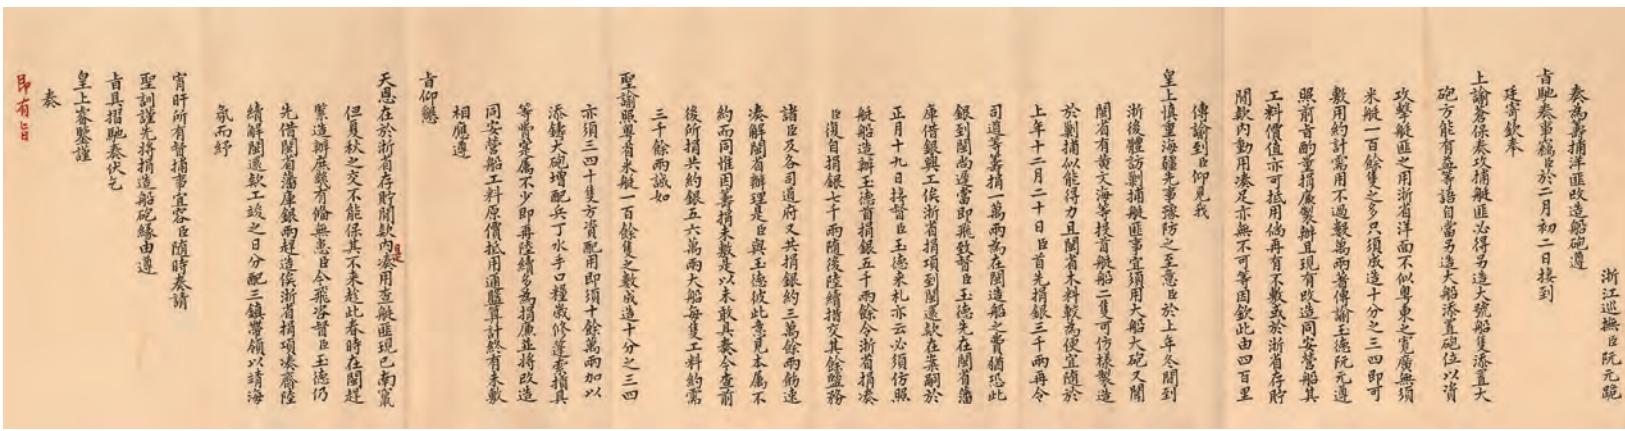 浙江巡撫臣阮元跪
奏為籌捕洋匪改造船砲遵
旨馳奏事竊臣於二月初二日接到
廷寄欽奉
上諭蒼保奏攻捕艇匪必得另造大號船隻添置大
砲方能有益等語自當另造大船添置砲位以資
攻擊艇匪之用浙省洋面不似粵東之寬廣無須
米艇一百餘隻之多只須成造十分之三四即可
敷用約計需用不過數萬兩著傳諭玉德阮元遵
照前旨酌量捐廉製辦且現有改造同安營船其
工料價值亦可抵用倘再有不敷或於浙省存貯
閒款內動用湊足亦無不可等因欽此由四百里
傳諭到臣仰見我
皇上慎重海疆先事豫防之至意臣於上年冬間到
浙後體訪剿捕艇匪事宜須用大船大砲又聞
閩省有黃文海等投首艇船二隻可仿樣製造
於剿捕似能得力且閩省木料較為便宜隨於
上年十二月二十日臣首先捐銀三千兩再令
司道等籌捐一萬兩為在閩造船之費猶恐此
銀到閩尚遲當即飛致督臣玉德先在閩省藩
庫借銀興工俟浙省捐項到閩還款在案嗣於
正月十九日接督臣玉德來札亦云必須仿照
艇船造辦玉德首捐銀五千兩餘令浙省捐湊
臣復自捐銀七千兩隨後陸續措交其餘鹽務
諸臣及各司道府又共捐銀約三萬餘兩飭速
湊解閩省辦理是臣與玉德彼此意見本屬不
約而同惟因籌捐未敷是以未敢具奏今查前
後所捐共約銀五六萬兩大船每隻工料約需
三千餘兩誠如
聖諭照粵省米艇一百餘隻之數成造十分之三四
亦須三四十隻方資配用即須十餘萬兩加以
添鑄大砲增配兵丁水手口糧歲修篷索損具
等費寔屬不少即再陸續多為捐廉並將改造
同安營船工料原價抵用通盤算計終有未敷
相應遵
旨仰懇
天恩在於浙省存貯閒款內湊用查艇匪現已南竄
是
但夏秋之交不能保其不來趁此春時在閩趕
緊造辦庶幾有備無患臣今飛咨督臣玉德仍
先借閩省藩庫銀兩趕造俟浙省捐項湊齊陸
續解閩還款工竣之日分配三鎮帶領以靖海
氛而紓
宵旰所有督捕事宜容臣隨時奏請
聖訓謹先將捐造船砲緣由遵
旨具摺馳奏伏乞
皇上睿鑒謹
奏
即有旨